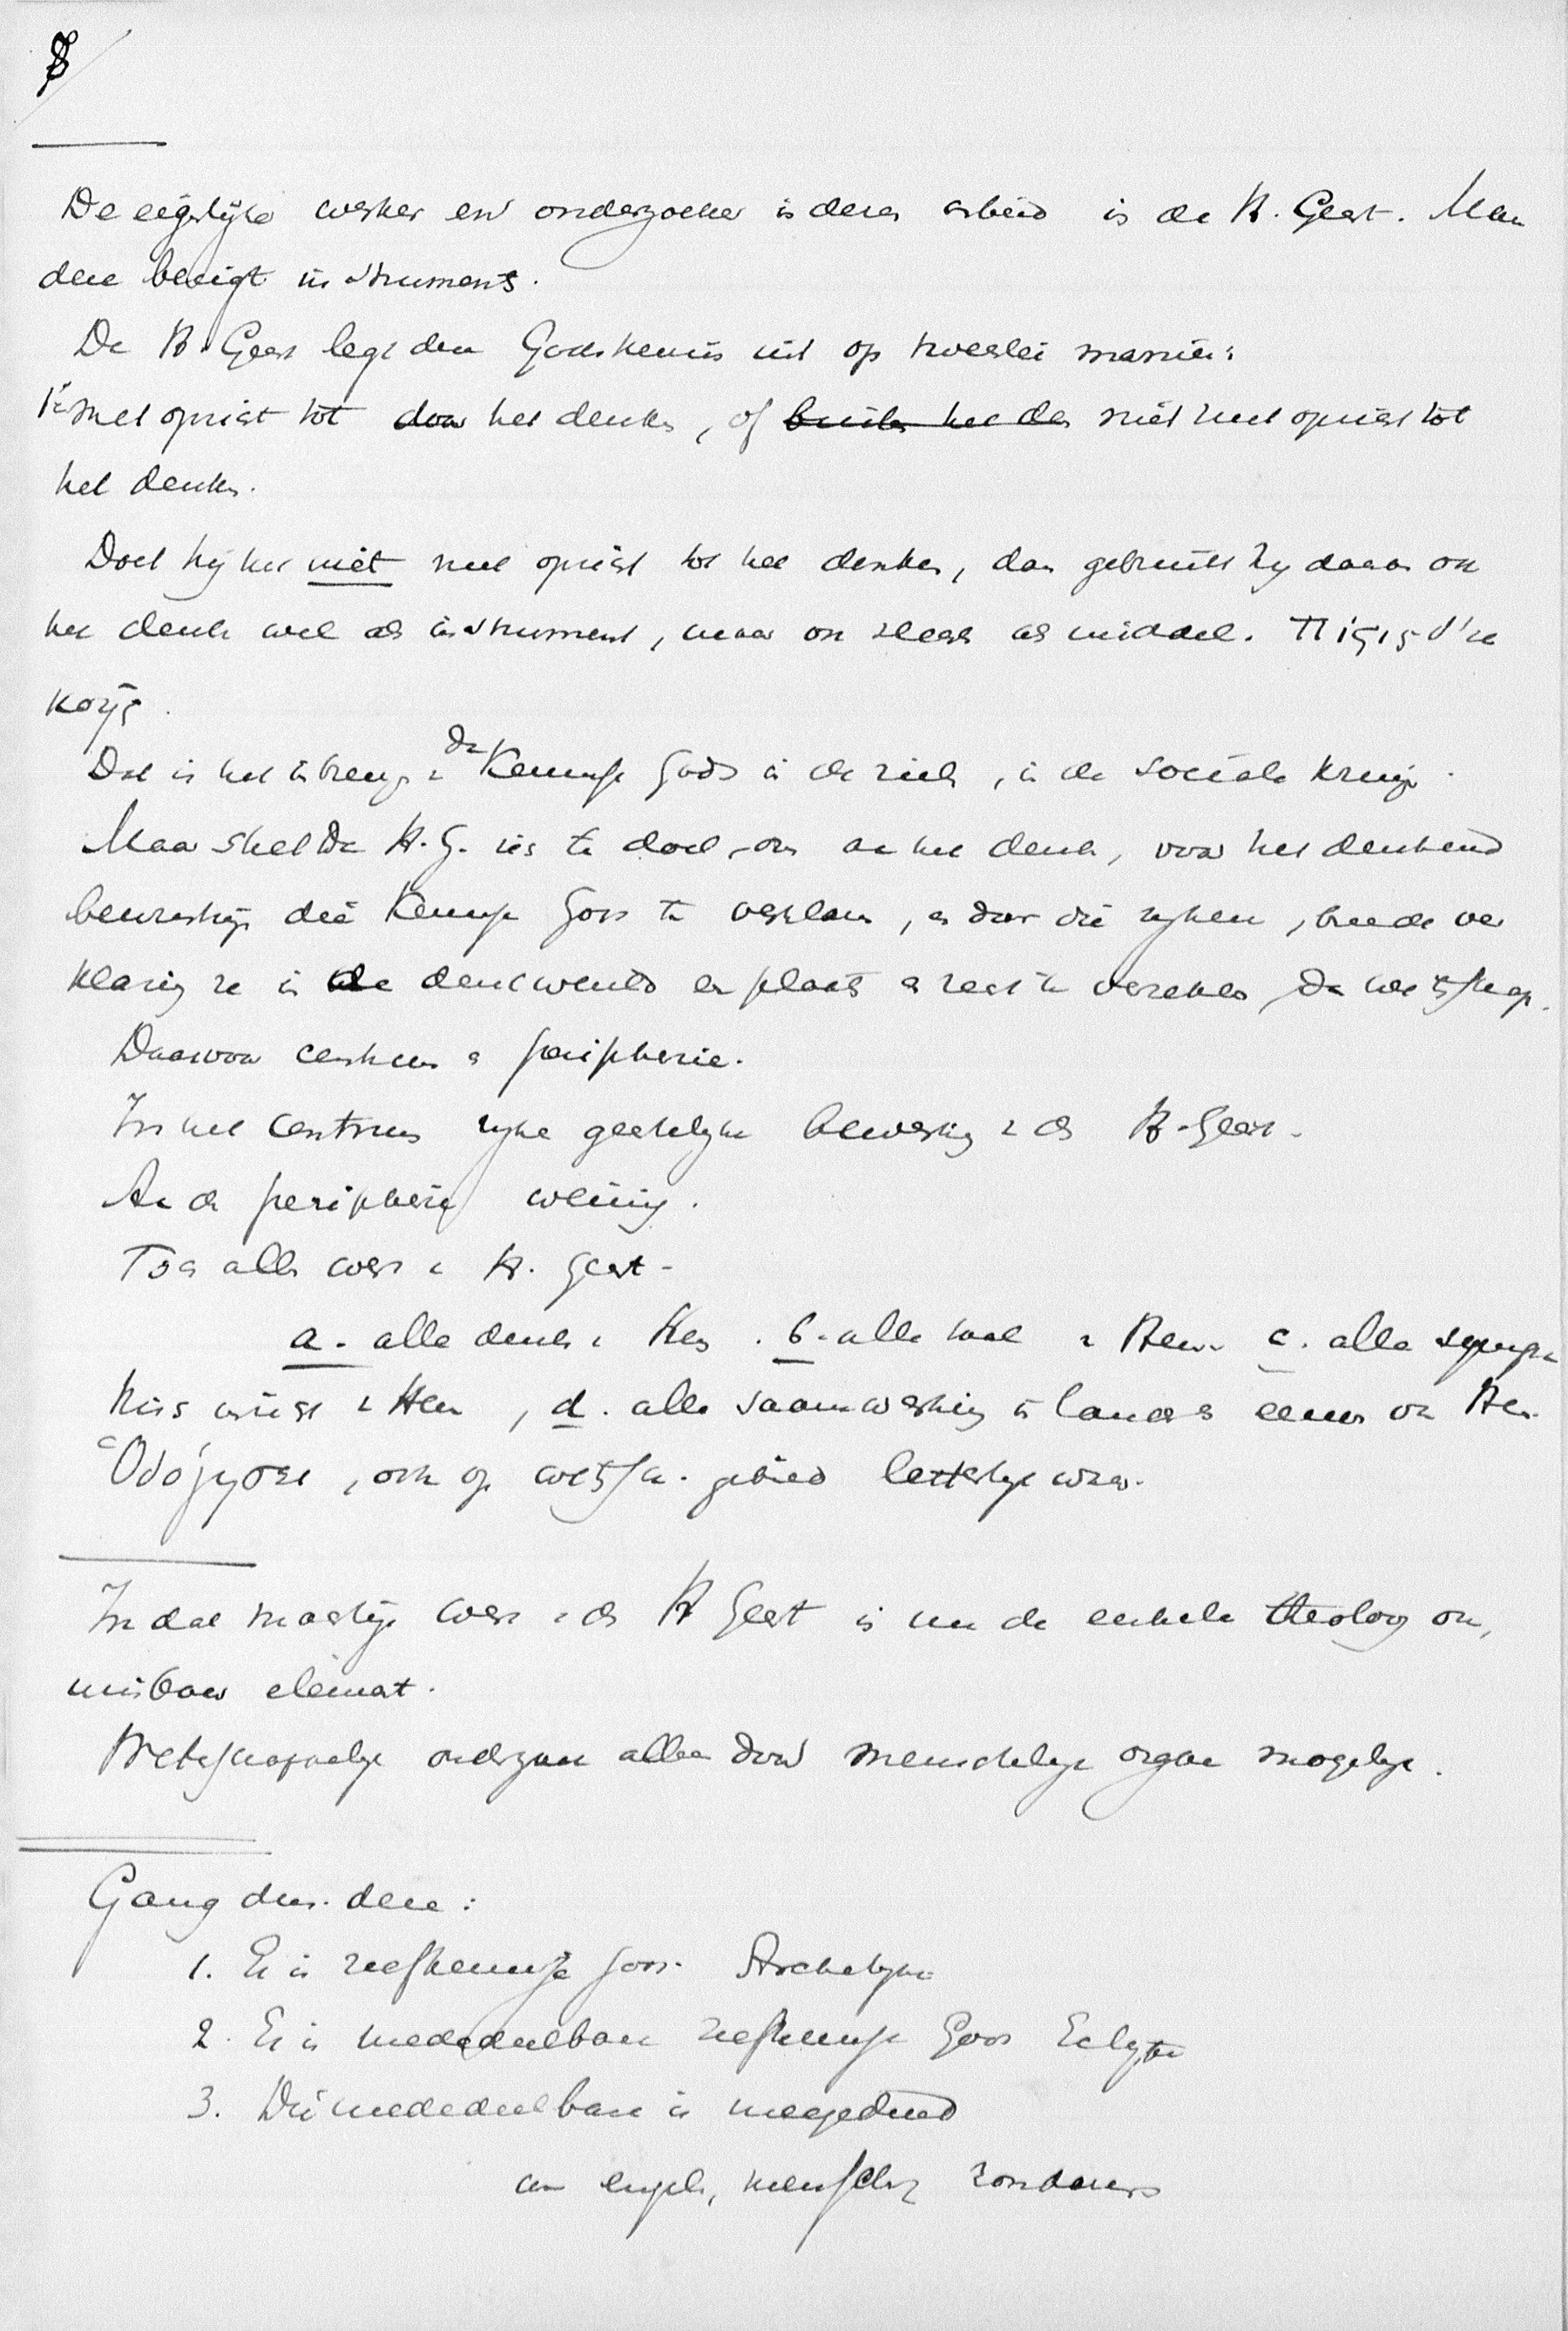 8
De eigelijke werker en onderzoeker in deze arbeid is de H. Geest. Men
deze bezigt instruments.
De H. Geest legt den Godskennis uit op tweeërlei manier:
met opzicht tot door het denken, of buiten het den niet met opzicht tot
het denken.
Doet hij het niet met opzicht tot het denken, dan gebruikt hij daarom ook
het denk wel als instrument, maar ook slechts als middel. Πίστις δι'
ἀκοῆς.
Dat is het inbreng v de Kennisse Gods in de ziel, in de sociale kring.
Maar stelt de H. G. zich ten doel, om aan het denk, voor het denkend
bewustzijn die Kennisse Gods te verklaren, en door die rijken, breede ver
klaring ze in de denkwereld een plaats en recht te verzekeren, de wetschap.
Daarvoor centrum en peripherie.
In het centrum rijke geestelijke bewerking v de H. Geest.
Aan de peripherie weinig.
Toch alles werk v H. Geest.
a. alle denk v Hem. b. alle taal v Hem. c. alle
v Hem, d. alle saamwerking in landen eeuwen van Hem.
Ὁδόγησε, ook op wetsch. gebied letterlijk waar.
In dat machtige werk v de H Geest is nu de enkele theoloog on,
misbaar element.
Wetenschappelijk onderzoek alleen door menschelijk organ mogelijk.
Gang dus deze:
1. Er is zelfkennisse Gods. Archetype
2. Er is mededeelbare zelfkennisse Gods Ectype
3. Die mededeelbare is meegedeeld
aan engelen, menschen, zondaars